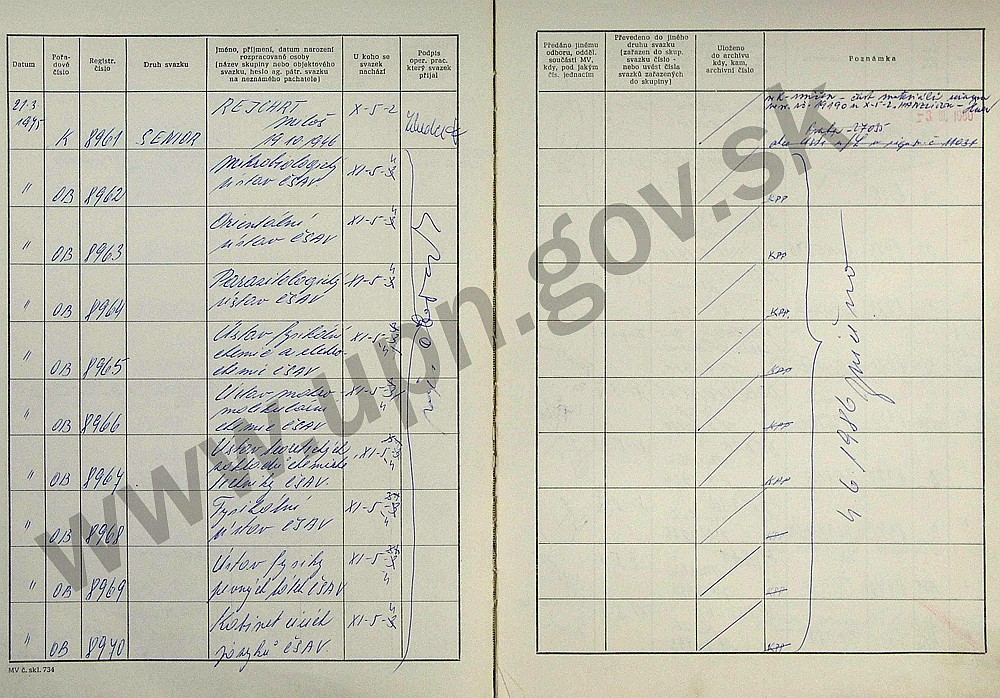 Datum
Pořa-
dové
číslo
Registr.
číslo
Druh svazku
Jméno, příjmení, datum narození
rozpracované osoby
(název skupiny nebo objektového
svazku, heslo ag. pátr. svazku
na neznámého pachatele)
U koho se
svazek
nachází
Podpis
oper. prac.
který svazek
přijal
Předáno jinému
odboru, odděl.
součásti MV,
kdy, pod jakým
čís. jednacím
Převedeno do jiného
druhu svazku
(zařazen do skup.
svazku číslo -
nebo uvést čísla
svazků zařazených
do skupiny)
Uloženo
do archivu
kdy, kam,
archivní číslo
Poznámka
21.3.
1975
K 8961 SENIOR
REJCHRT
Miloš
19.10.1946
X-5-2
" OB 8962
Mikrobiologický
ústav ČSAV
XI-5-4
KPP
" OB 8963
Orientální
ústav ČSAV
XI-5-4
KPP
" OB 8964
Parasitologický
ústav ČSAV
XI-5-4
KPP
" OB 8965
Ústav fysikální
chemie a elektro-
chemie ČSAV
XI-5-4
KPP
" OB 8966
Ústav makro-
molekulární
chemie ČSAV
XI-5-4
KPP
" OB 8967
Ústav teoretických
základů chemické
techniky ČSAV.
XI-5-4
KPP
" OB 8968
Fysikální
ústav ČSAV
XI-5-4
" OB 8969
Ústav fysiky
pevných látek ČSAV
XI-5-4
" OB 8970
Kabinet cizích
jazyků ČSAV.
XI-5-4
KPP
4 6 1986 zničeno
MV č. skl. 734
www.upn.gov.sk